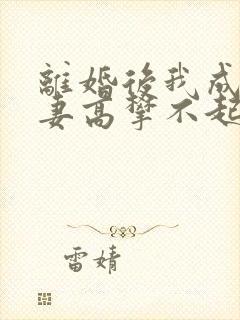 離婚後我成
妻高攀不起
雷婧